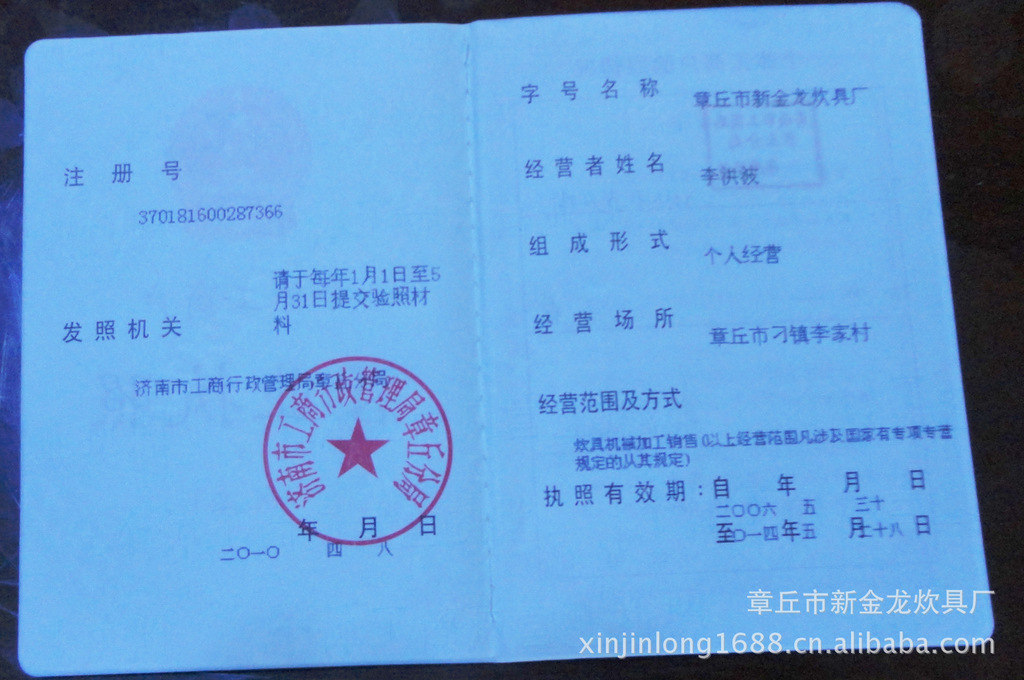 注册号
370181600287366
请于每年1月1日至5
月31日提交验照材
料
发照机关
济南市工商行政管理局章丘分局
济南市工商行政管理局章丘分局
年 月 日
二〇一〇 四 八
字号名称 章丘市新金龙炊具厂
经营者姓名 李洪波
组成形式 个人经营
经营场所 章丘市刁镇李家村
经营范围及方式
炊具机械加工销售(以上经营范围凡涉及国家有专项专营
规定的从其规定)
执照有效期:自 年 月 日
二〇〇六 五 三十
至 年 月 日
〇一四 五 二十八
章丘市新金龙炊具厂
xinjinlong1688.cn.alibaba.com